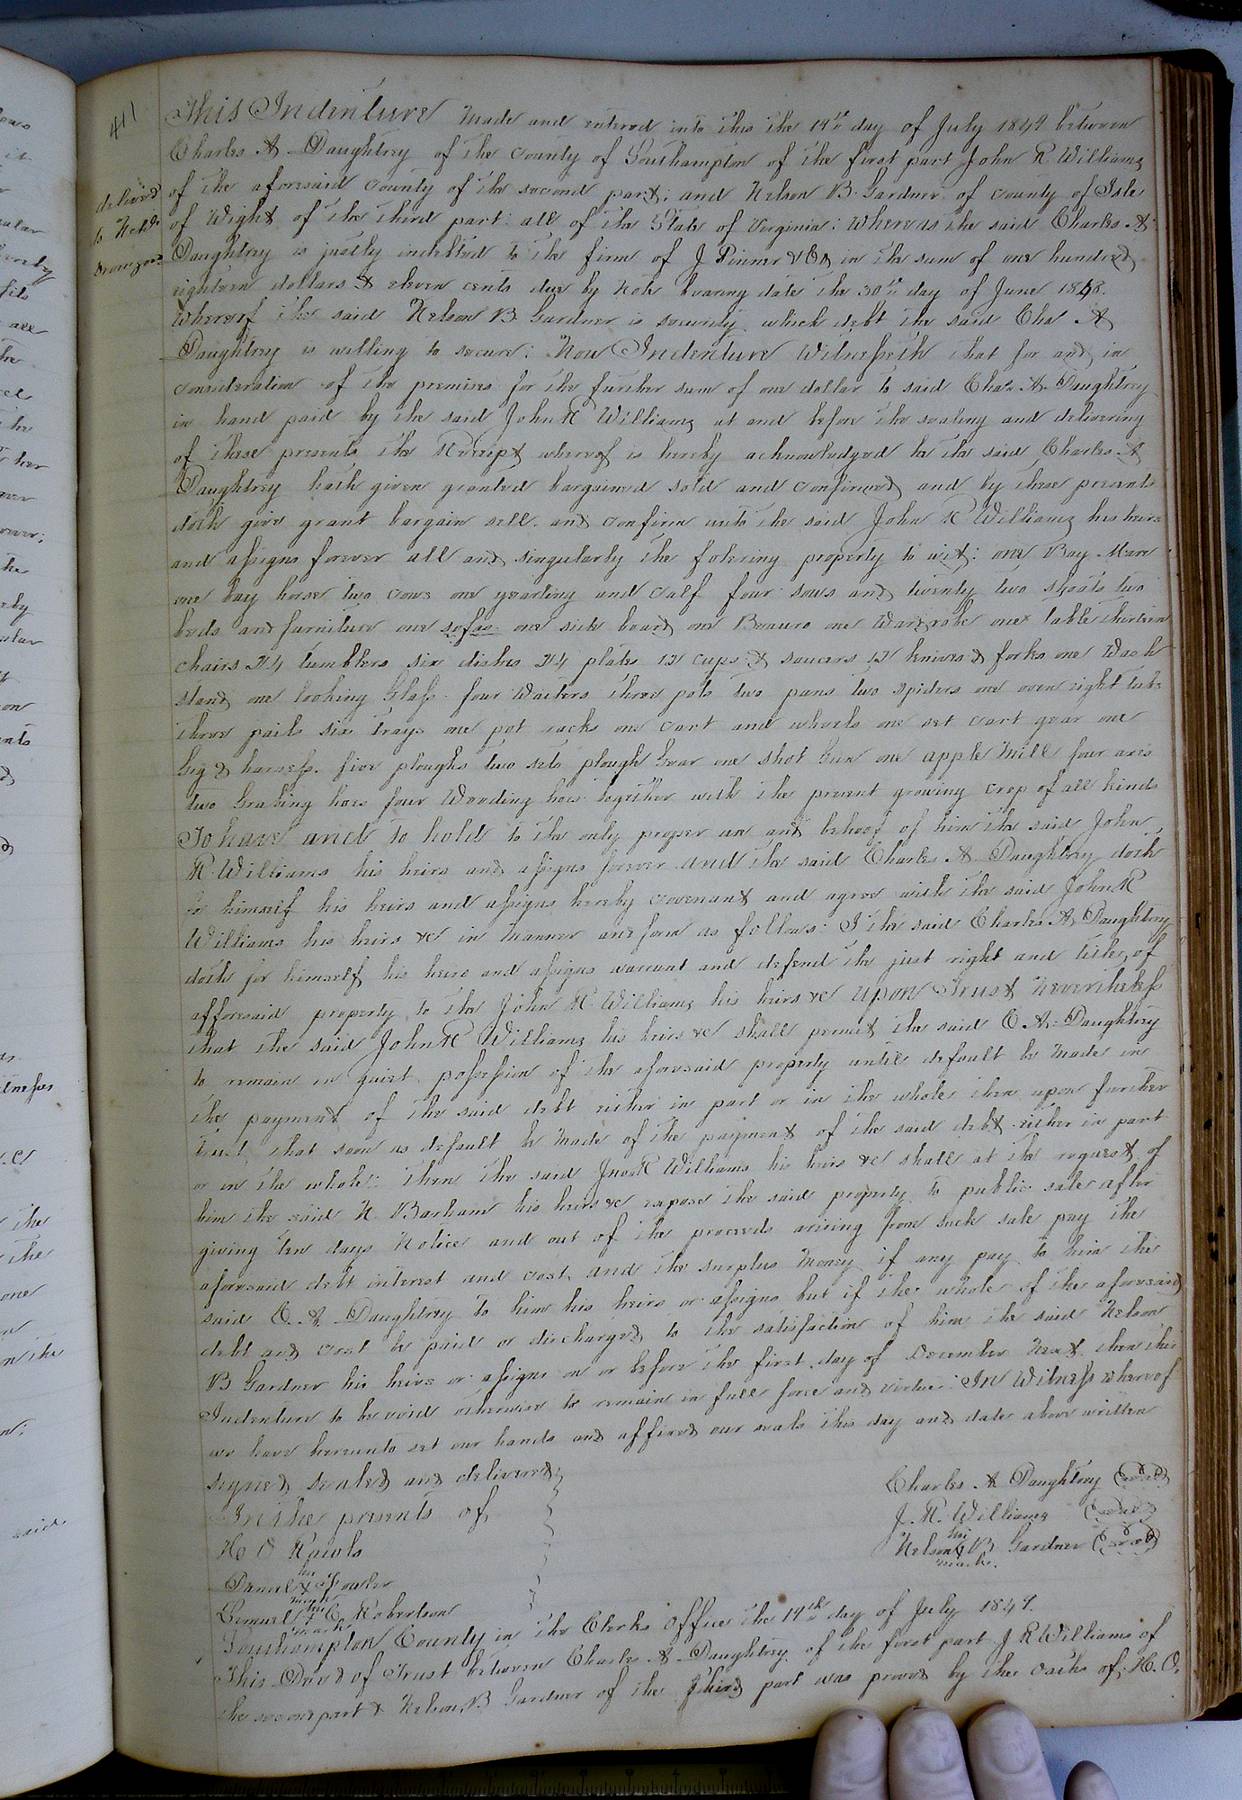 411
delivered
to
This Indenture Made and entered into this the 14th day of July 1847 between
Charles A Daughtrey of the County of Southampton of the first part John R Williams
of the aforesaid County of the second part; and Nelson B. Gardner of County of Isle
of Wight of the third part all of the State of Virginia: Whereas the said Charles A
Daughtrey is justly indebted to the firm of J. Pinner & Co in the sum of one hundred
eighteen dollars & eleven cents due by Note bearing date the 30th day of June 1848.
Whereof the said Nelson B. Gardner is security which debt the said Chs A
Daughtrey is willing to secure: Now Indenture Witnesseth that for and in
consideration of the premises for the further sum of one dollar to said Chas A Daughtrey
in hand paid by the said John R Williams at and before the sealing and delivering
of these presents the Receipt whereof is hereby acknowledged he the said Charles A
Daughtrey hath given granted bargained sold and confirmed and by these presents
doth give grant bargain sell and confirm unto the said John R Williams his heirs
and assigns forever all and singularly the folering property to wit: one Bay Mare
one bay horse two cows one yearling and calf four sows and twenty two shoats two
beds and furniture one sofas one side board one Beauro one Wardrobe one table thirteen
chairs 24 tumblers six dishes 24 plates 12 cups & saucers 12 knives & forks one Wash
stand one looking Glass four Waiters three pots two pans two spiders one oven eight tubs
three pails six trays one pot racks one cart and wheels one set cart gear one
Gig & harness. five ploughs two sets plough Gear one shot Gun one apple Mill four axes
two Grabing hoes four Weeding hoes together with the present growing crop of all kinds
To have and to hold to the only proper use and behoof of him the said John
R. Williams his heirs and assigns forever and the said Charles A Daughtrey doth
for himself his heirs and assigns hereby covenant and agree with the said John R
Williams his heirs &c in manner and form as follows: I the said Charles A Daughtrey
doth for himself his heirs and assigns warrant and defend the just right and title of
afforesaid property to the John R Williams his heirs &c upon Trust Nevertheless
that the said John R Williams his heirs &c shall permit the said C A. Daughtrey
to remain in quiet possession of the aforesaid property until default be made in
the payment of the said debt either in part or in the whole then upon further
trust that soon as default be made of the payment of the said debt either in part
or in the whole: then the said Jno R Williams his heirs &c shall at the request of
him the said N Barham his heirs &c expose the said property to public sale after
giving ten days Notice and out of the proceeds arising from such sale pay the
aforesaid debt interest and cost, and the surplus money if any pay to him the
said C. A. Daughtrey to him his heirs or assigns but if the whole of the aforesaid
debt and cost be paid or discharged to the satisfaction of him the said Nelson
B Gardner his heirs or assigns on or before the first day of December Next then this
Indenture to be void otherwise to remain in full force and virtue: In Witness whereof
we have hereunto set our hands and affixed our seals this day and date above written
signed sealed and delivered
In the presents of
H O Rawls
his
Daniel X Fowler
mark
his
Lemuel X C. Robertson
mark
Charles A Daughtrey (seal)
J. R. Williams (seal)
his
Nelson X B Gardner (seal)
mark.
Southampton County in the Clerks Office the 19th day of July 1847.
This Deed of Trust between Charles A Daughtrey of the first part J R Williams of
the second part & Nelson B Gardner of the third part was proved by the oaths of H. O.